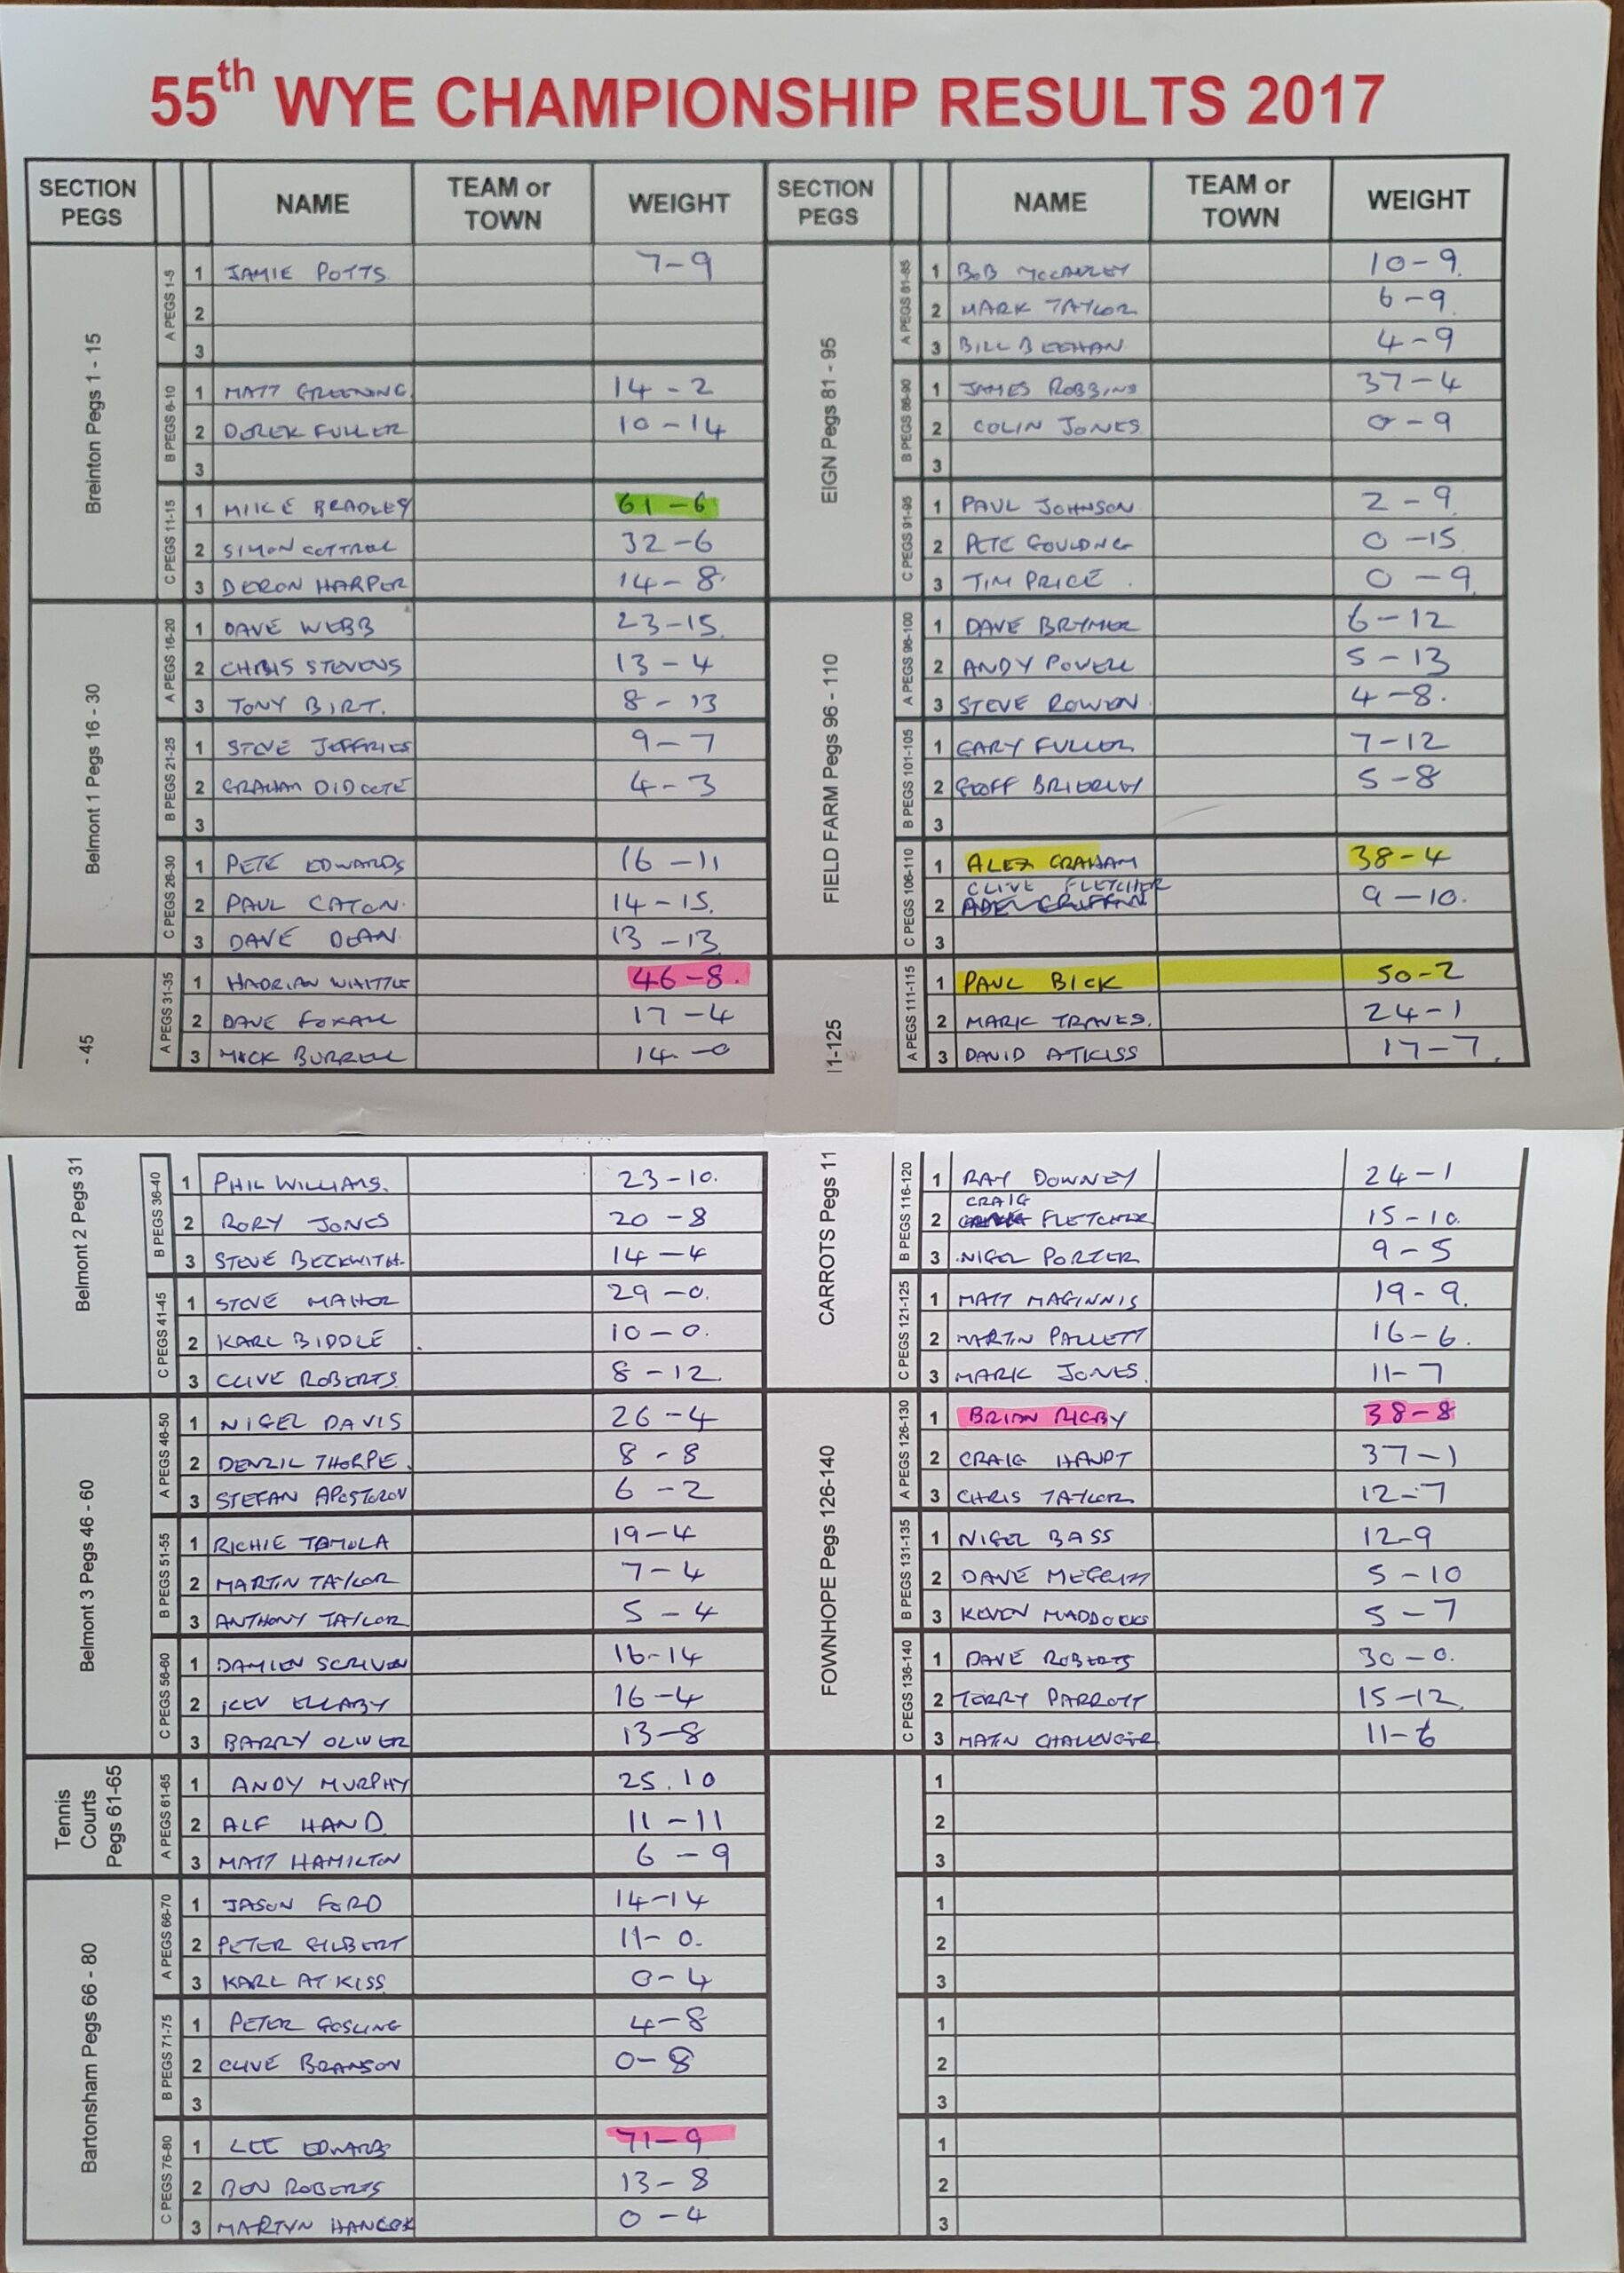 55th WYE CHAMPIONSHIP RESULTS 2017
SECTION PEGS NAME TEAM or TOWN WEIGHT
Breinton Pegs 1 - 15
A PEGS 1-5
1 JAMIE POTTS. 7-9
2
3
B PEGS 6-10
1 MATT GREENING 14-2
2 DEREK FULLER 10-14
3
C PEGS 11-15
1 MIKE BRADLEY 61-6
2 SIMON COTTROL 32-6
3 DERON HARPER 14-8.
Belmont 1 Pegs 16 - 30
A PEGS 16-20
1 DAVE WEBB 23-15.
2 CHRIS STEVENS 13-4
3 TONY BIRT. 8-13
B PEGS 21-25
1 STEVE JEFFRIES 9-7
2 GRAHAM DIDCOTE 4-3
3
C PEGS 26-30
1 PETE EDWARDS 16-11
2 PAUL CATON. 14-15.
3 DAVE DEAN. 13-13
Belmont 2 Pegs 31 - 45
A PEGS 31-35
1 HADRIAN WHITTLE 46-8.
2 DAVE FOXALL 17-4
3 MICK BURRELL 14-0
B PEGS 36-40
1 PHIL WILLIAMS. 23-10.
2 RORY JONES 20-8
3 STEVE BECKWITH. 14-4
C PEGS 41-45
1 STEVE MAHER 29-0.
2 KARL BIDDLE 10-0.
3 CLIVE ROBERTS. 8-12.
Belmont 3 Pegs 46 - 60
A PEGS 46-50
1 NIGEL DAVIS 26-4
2 DENZIL THORPE. 8-8
3 STEFAN APOSTOLOV 6-2
B PEGS 51-55
1 RICHIE TAMOLA 19-4
2 MARTIN TAYLOR 7-4
3 ANTHONY TAYLOR 5-4
C PEGS 56-60
1 DAMIEN SCRIVEN 16-14
2 KEV ELLABY 16-4
3 BARRY OLIVER 13-8
Tennis Courts Pegs 61-65
A PEGS 61-65
1 ANDY MURPHY 25.10
2 ALF HAND 11-11
3 MATT HAMILTON 6-9
Bartonsham Pegs 66 - 80
A PEGS 66-70
1 JASON FORD 14-14
2 PETER GILBERT 11-0.
3 KARL ATKISS 0-4
B PEGS 71-75
1 PETER GOSLING 4-8
2 CLIVE BRANSON 0-8
3
C PEGS 76-80
1 LEE EDWARDS 71-9
2 BEN ROBERTS 13-8
3 MARTYN HANCOX 0-4
SECTION PEGS NAME TEAM or TOWN WEIGHT
EIGN Pegs 81 - 95
A PEGS 81-85
1 BOB MCCAULEY 10-9.
2 MARK TAYLOR 6-9
3 BILL BEEHAN 4-9
B PEGS 86-90
1 JAMES ROBBINS 37-4
2 COLIN JONES 0-9
3
C PEGS 91-95
1 PAUL JOHNSON 2-9.
2 PETE GOULDING 0-15
3 TIM PRICE. 0-9
FIELD FARM Pegs 96 - 110
A PEGS 96-100
1 DAVE BRYMER 6-12
2 ANDY POWELL 5-13
3 STEVE ROWEN. 4-8.
B PEGS 101-105
1 GARY FULLER 7-12
2 GEOFF BRIERLEY 5-8
3
C PEGS 106-110
1 ALEX GRAHAM 38-4
2 CLIVE FLETCHER 9-10.
3
CARROTS Pegs 111-125
A PEGS 111-115
1 PAUL BICK 50-2
2 MARK TRAVES. 24-1
3 DAVID ATKISS 17-7.
B PEGS 116-120
1 RAY DOWNEY 24-1
2 CRAIG FLETCHER 15-10.
3 NIGEL PORTER 9-5
C PEGS 121-125
1 MATT MAGINNIS 19-9.
2 MARTIN PALLETT 16-6.
3 MARK JONES. 11-7
FOWNHOPE Pegs 126-140
A PEGS 126-130
1 BRIAN RIGBY 38-8
2 CRAIG HAUPT 37-1
3 CHRIS TAYLOR 12-7
B PEGS 131-135
1 NIGEL BASS 12-9
2 DAVE 5-10
3 KEVEN MADDOCKS 5-7
C PEGS 136-140
1 DAVE ROBERTS 30-0.
2 TERRY PARROTT 15-12.
3 MATIN CHALENGER 11-6
1
2
3
1
2
3
1
2
3
1
2
3